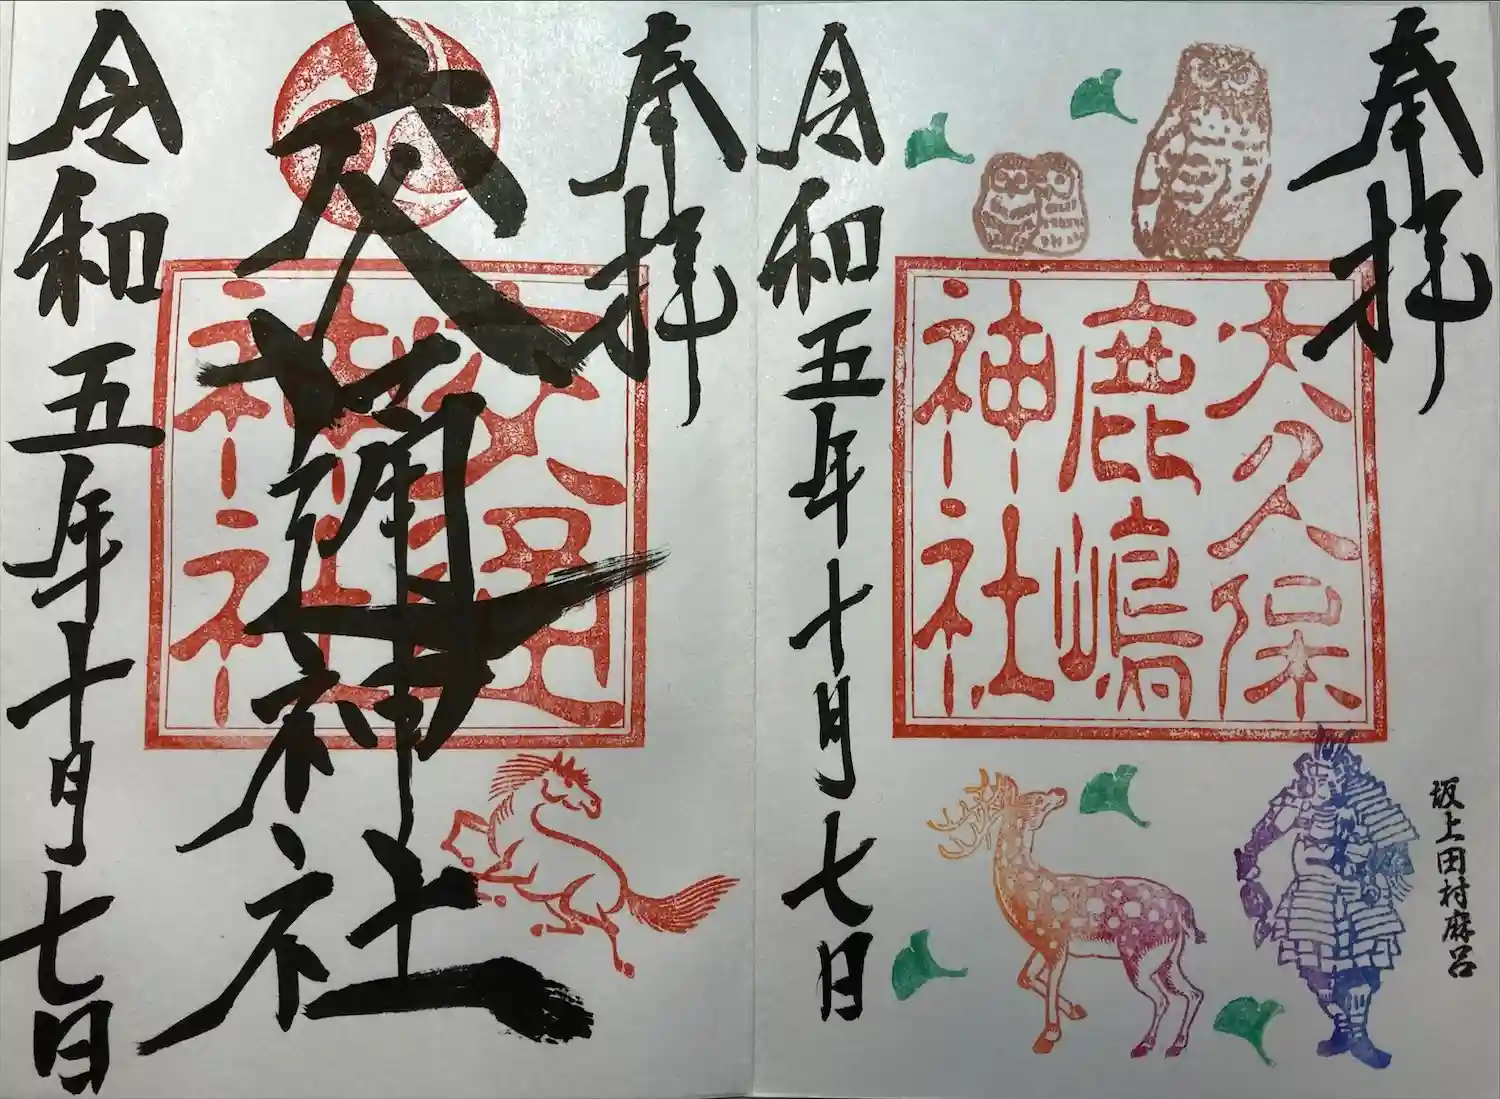 奉拝
大久保
鹿嶋
神社
令和五年十月七日
坂上田村麻呂
奉拝
交通神社
交通
神社
令和五年十月七日